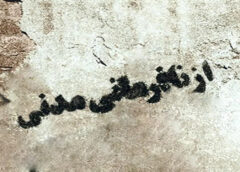 از نافرمانی مدنی